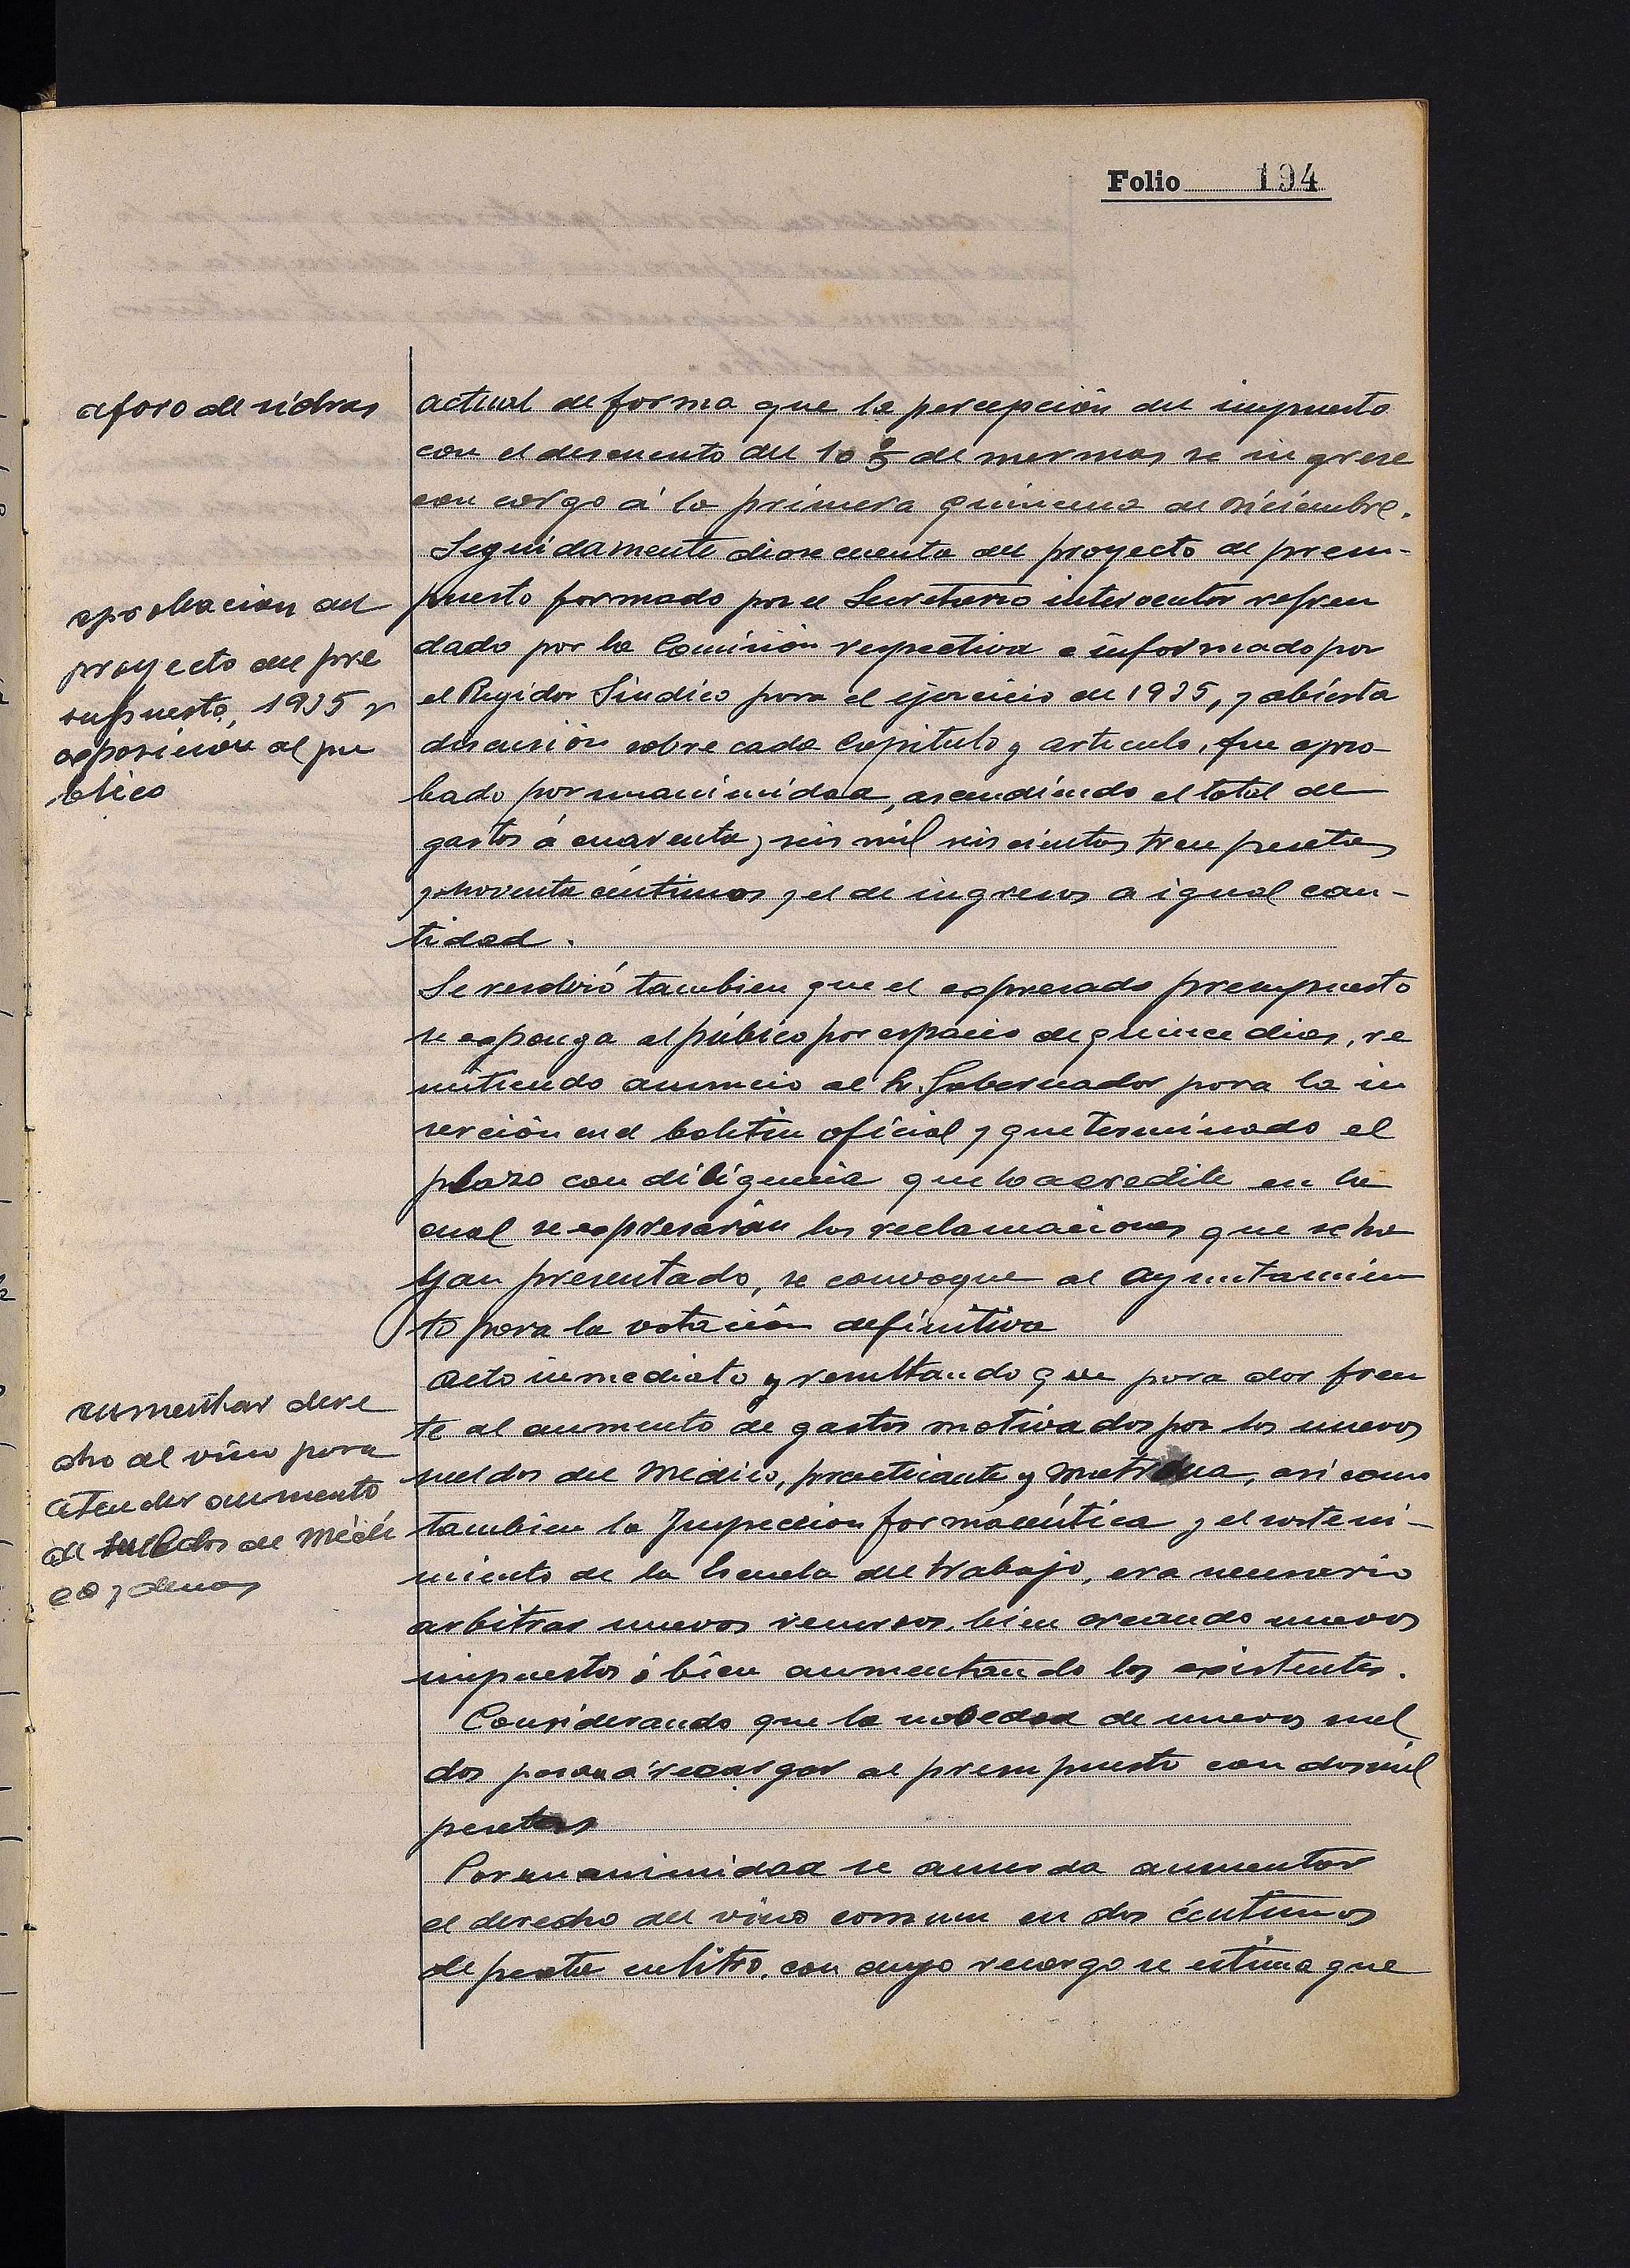 Folio 194
aforo de sidras
actual de forma que la percepción del impuesto
con el descuento del 10 % de mermas se ingrese
con cargo á la primera quincena de Diciembre.
Seguidamente diose cuenta del proyecto de presu-
puesto formado por el Secretario interventor refren
dado por la Comisión respectiva e informado por
el Regidor Sindico para el ejercicio de 1935, y abierta
discusión sobre cada Capitulo y articulo, fue apro-
bado por unanimidad, ascendiendo el total de
gastos á cuarenta y seis mil seiscientos trece pesetas
y noventa céntimos y el de ingresos a igual can-
tidad.
aprobacion del
proyecto del pre
supuesto, 1935 y
exposición al pu
blico
Se resolvió tambien que el expresado presupuesto
se exponga al público por espacio de quince dias, re
mitiendo anuncio al Sr. Gobernador para la in
serción en el boletin oficial y que terminado el
plazo con diligencia que lo acredite en la
cual se expresarán las reclamaciones que se ha
yan presentado, se convoque al Ayuntamien
to para la votación definitiva
Acto inmediato y resultando que para dar fren
te al aumento de gastos motivados por los nuevos
sueldos del Médico, practicante y Matrona, así como
tambien la Inspeccion farmacéutica y el sosteni-
miento de la Escuela del trabajo, era necesario
arbitrar nuevos recursos, bien creando nuevos
impuestos ó bien aumentando los existentes.
aumentar dere
cho al vino para
atender aumento
de sueldos de Médi
co y demas
Considerando que la novedad de nuevos suel
dos pasan á recargar al presupuesto con dos mil
pesetas
Por unanimidad se acuerda aumentar
el derecho del vino comun en dos céntimos
de peseta en litro, con cuyo recargo se estima que